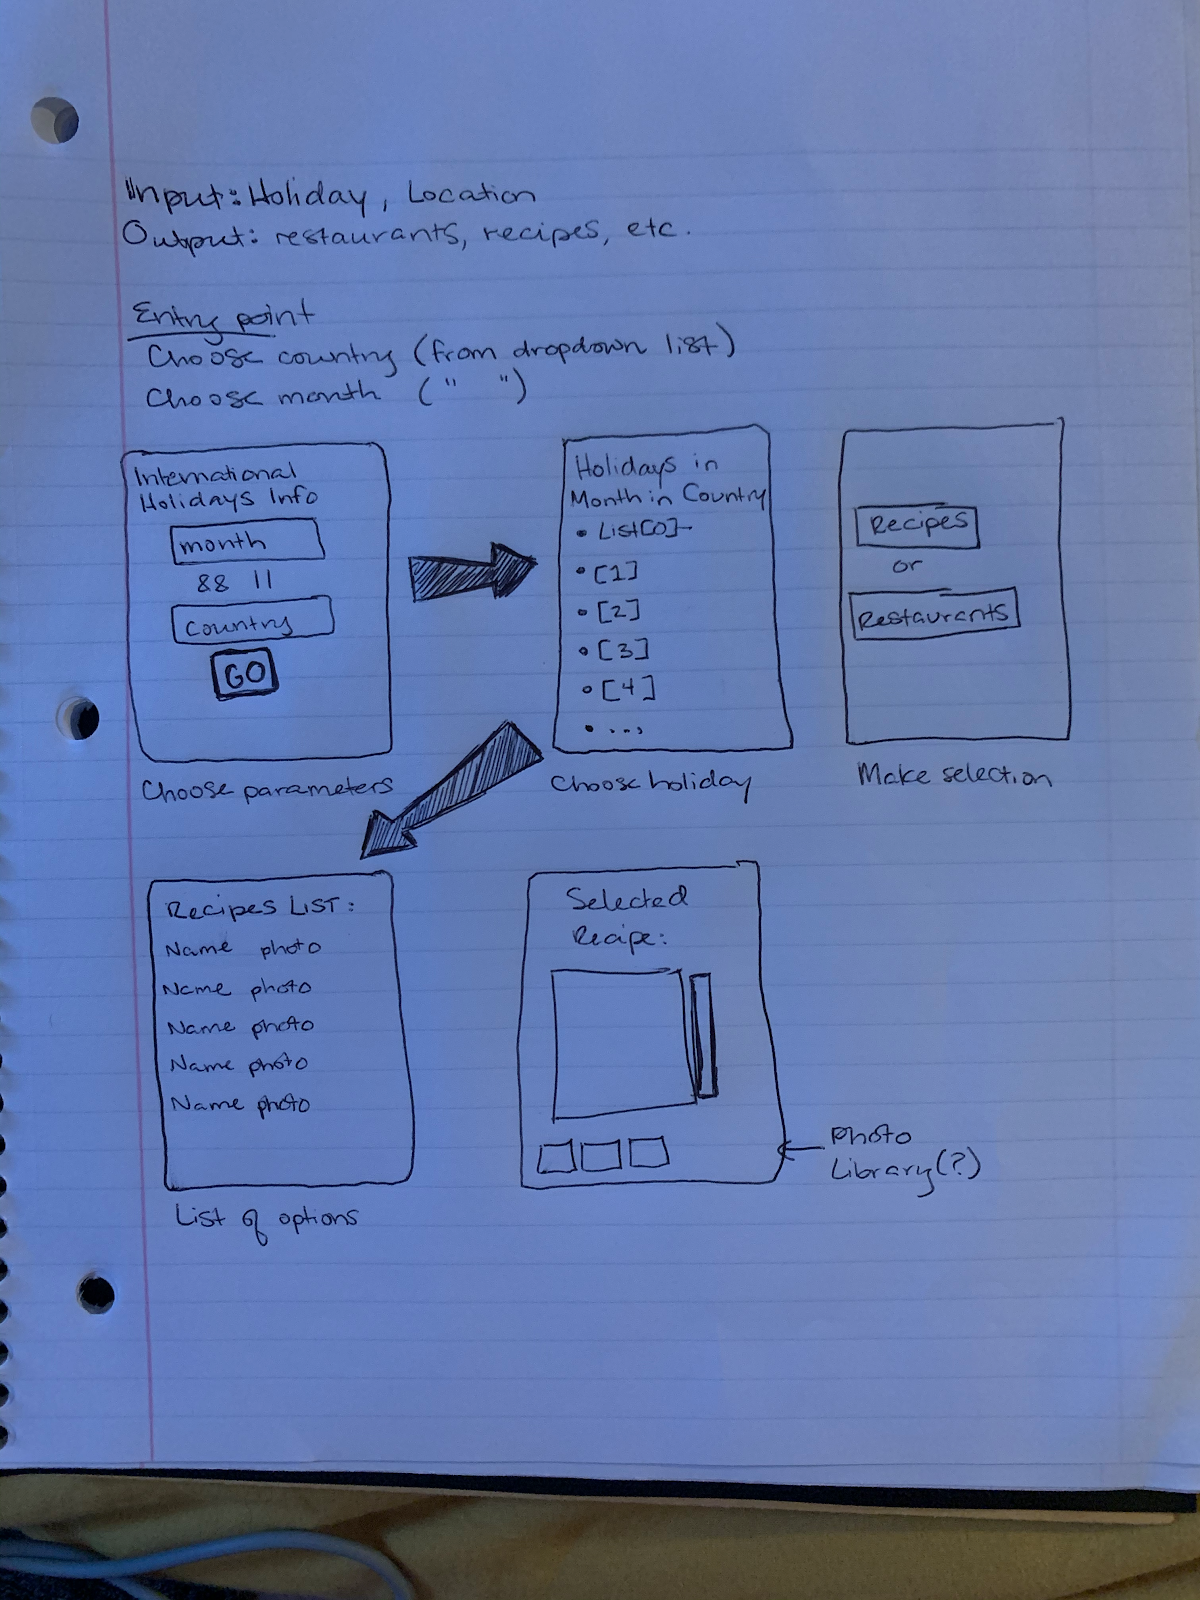 Input: Holiday, Location
Output: restaurants, recipes, etc.
Entry point
Choose country (from dropdown list)
Choose month (" ")
International
Holidays Info
month
&& ||
Country
GO
Choose parameters
Holidays in
Month in Country
• List[0]-
• [1]
• [2]
• [3]
• [4]
• ...
Choose holiday
Recipes
or
Restaurants
Make selection
Recipes List:
Name photo
Name photo
Name photo
Name photo
Name photo
List of options
Selected
Recipe:
Photo
Library(?)